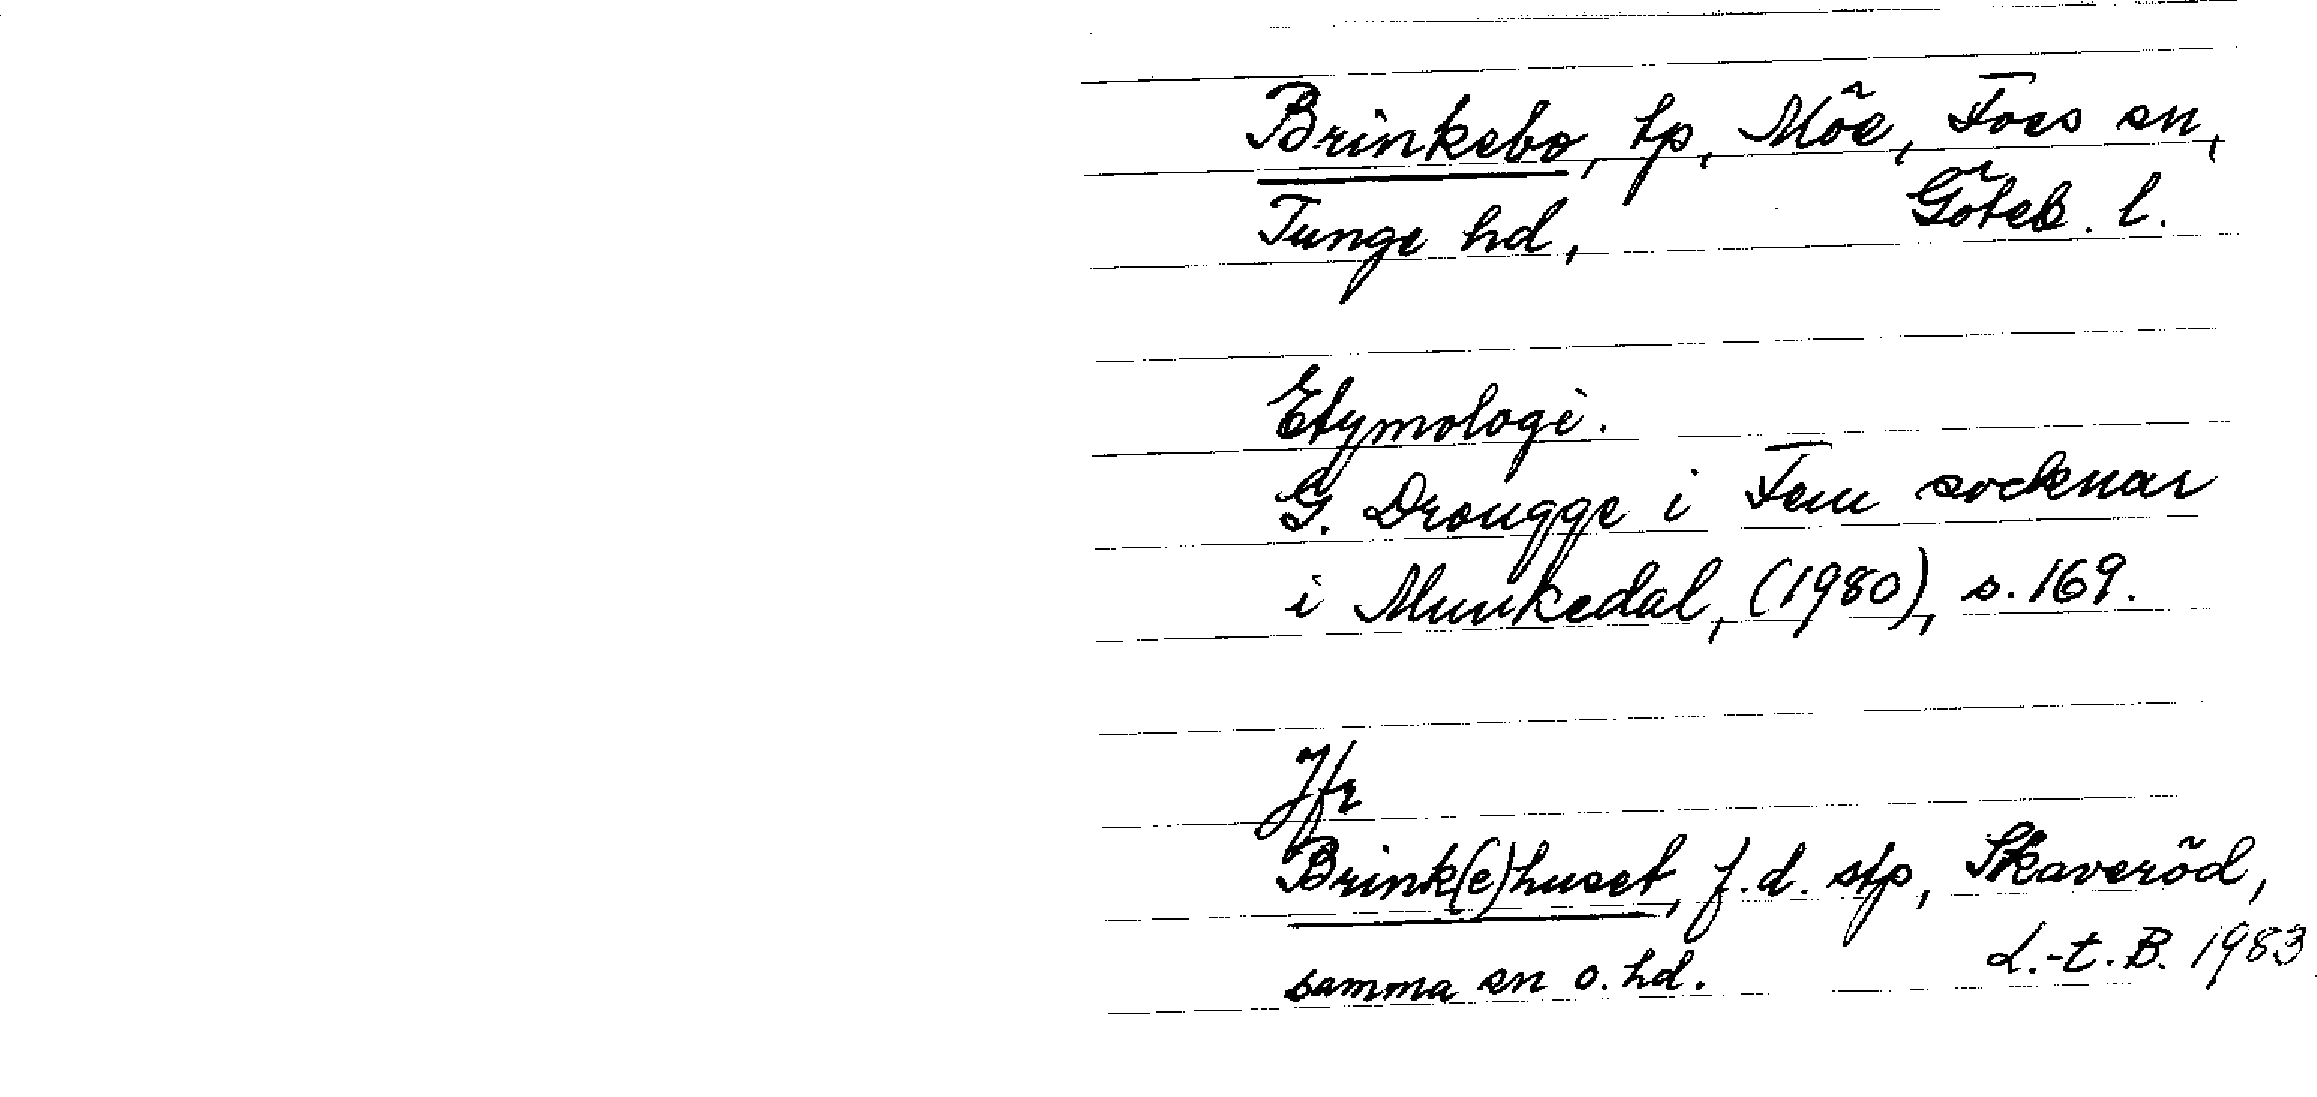 Brinkebo, tp, Möe, Foss sn,
Tunge hd, Göteb. l.
Etymologi.
G. Drougge i Fem socknar
i Munkedal, (1980), s. 169.
Jfr
Brink(e)huset, f.d. stp, Skaveröd,
samma sn o. hd. L.-t. B. 1983